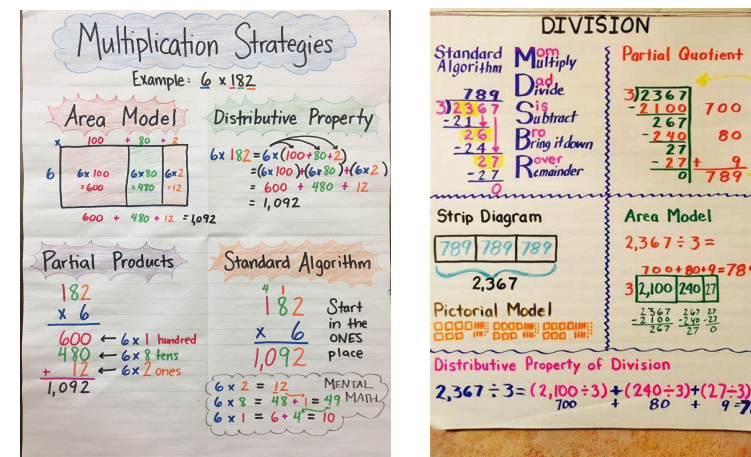 Multiplication Strategies
Example: 6 x 182
Area Model
x 100 + 80 + 2
6 6x100 6x80 6x2
=600 =480 =12
600 + 480 + 12 = 1,092
Distributive Property
6x182 = 6x(100+80+2)
=(6x100)+(6x80)+(6x2)
= 600 + 480 + 12
= 1,092
Partial Products
182
x 6
600 ← 6 x 1 hundred
480 ← 6 x 8 tens
+ 12 ← 6 x 2 ones
1,092
Standard Algorithm
4 1
182
x 6
1,092
Start
in the
ONES
place
6 x 2 = 12
6 x 8 = 48 + 1 = 49
6 x 1 = 6 + 4 = 10
MENTAL
MATH
DIVISION
Standard
Algorithm
789
3)2367
-21
26
-24
27
-27
0
Mom
Multiply
Dad
Divide
Sis
Subtract
Bro
Bring it down
Rover
Remainder
Partial Quotient
3)2367
-2100 700
267
-240 80
27
-27 + 9
0 789
Strip Diagram
789 789 789
2,367
Pictorial Model
Area Model
2,367÷3=
700+80+9=789
3 2,100 240 27
2367 267 27
-2100 -240 -27
267 27 0
Distributive Property of Division
2,367÷3=(2,100÷3)+(240÷3)+(27÷3)
700 + 80 + 9=7